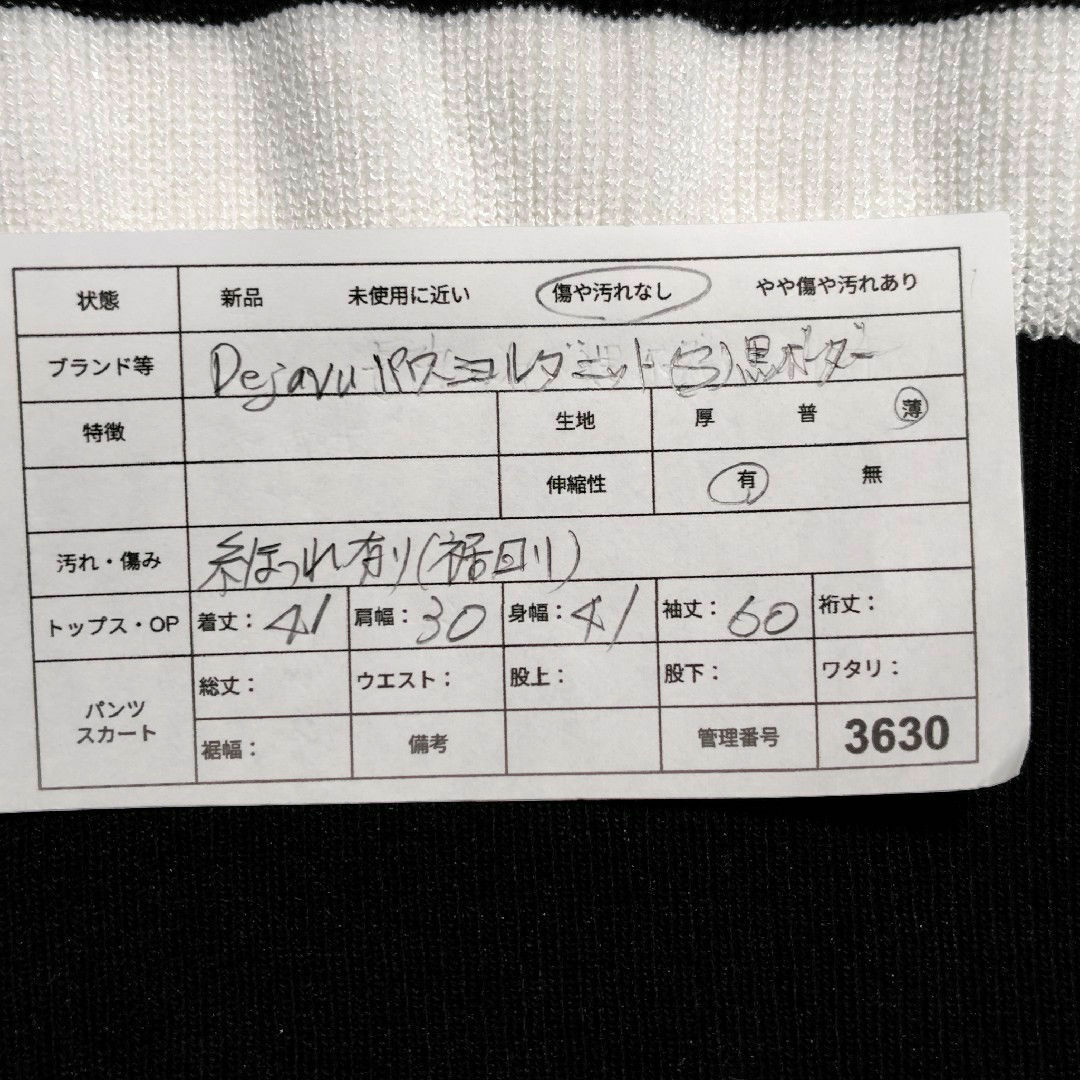 状態 新品 未使用に近い 傷や汚れなし やや傷や汚れあり
ブランド等 Dejavu ニット(S)黒ボーダー
特徴 生地 厚 普 薄
伸縮性 有 無
汚れ・傷み 糸ほつれ有り(裾回り)
トップス・OP 着丈: 41 肩幅: 30 身幅: 41 袖丈: 60 裄丈:
パンツ スカート 総丈: ウエスト: 股上: 股下: ワタリ:
裾幅: 備考 管理番号 3630